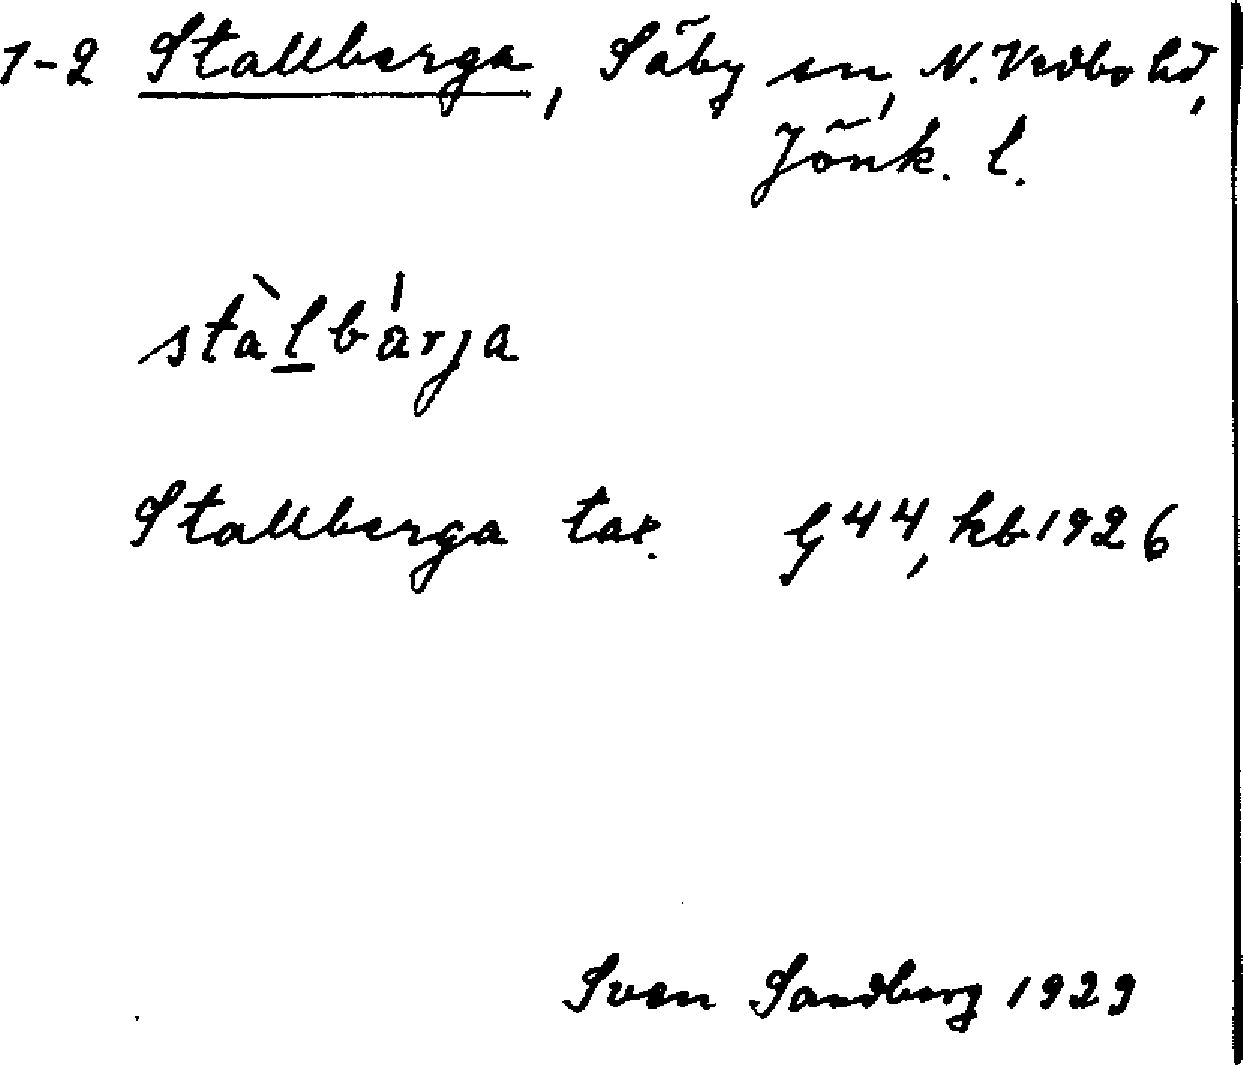 1-2 Stallberga, Säby sn, N. Vedbo hd,
Jönk. l.
stàlbárja
Stallberga tax. G44, kb 1926
Sven Sandberg 1929